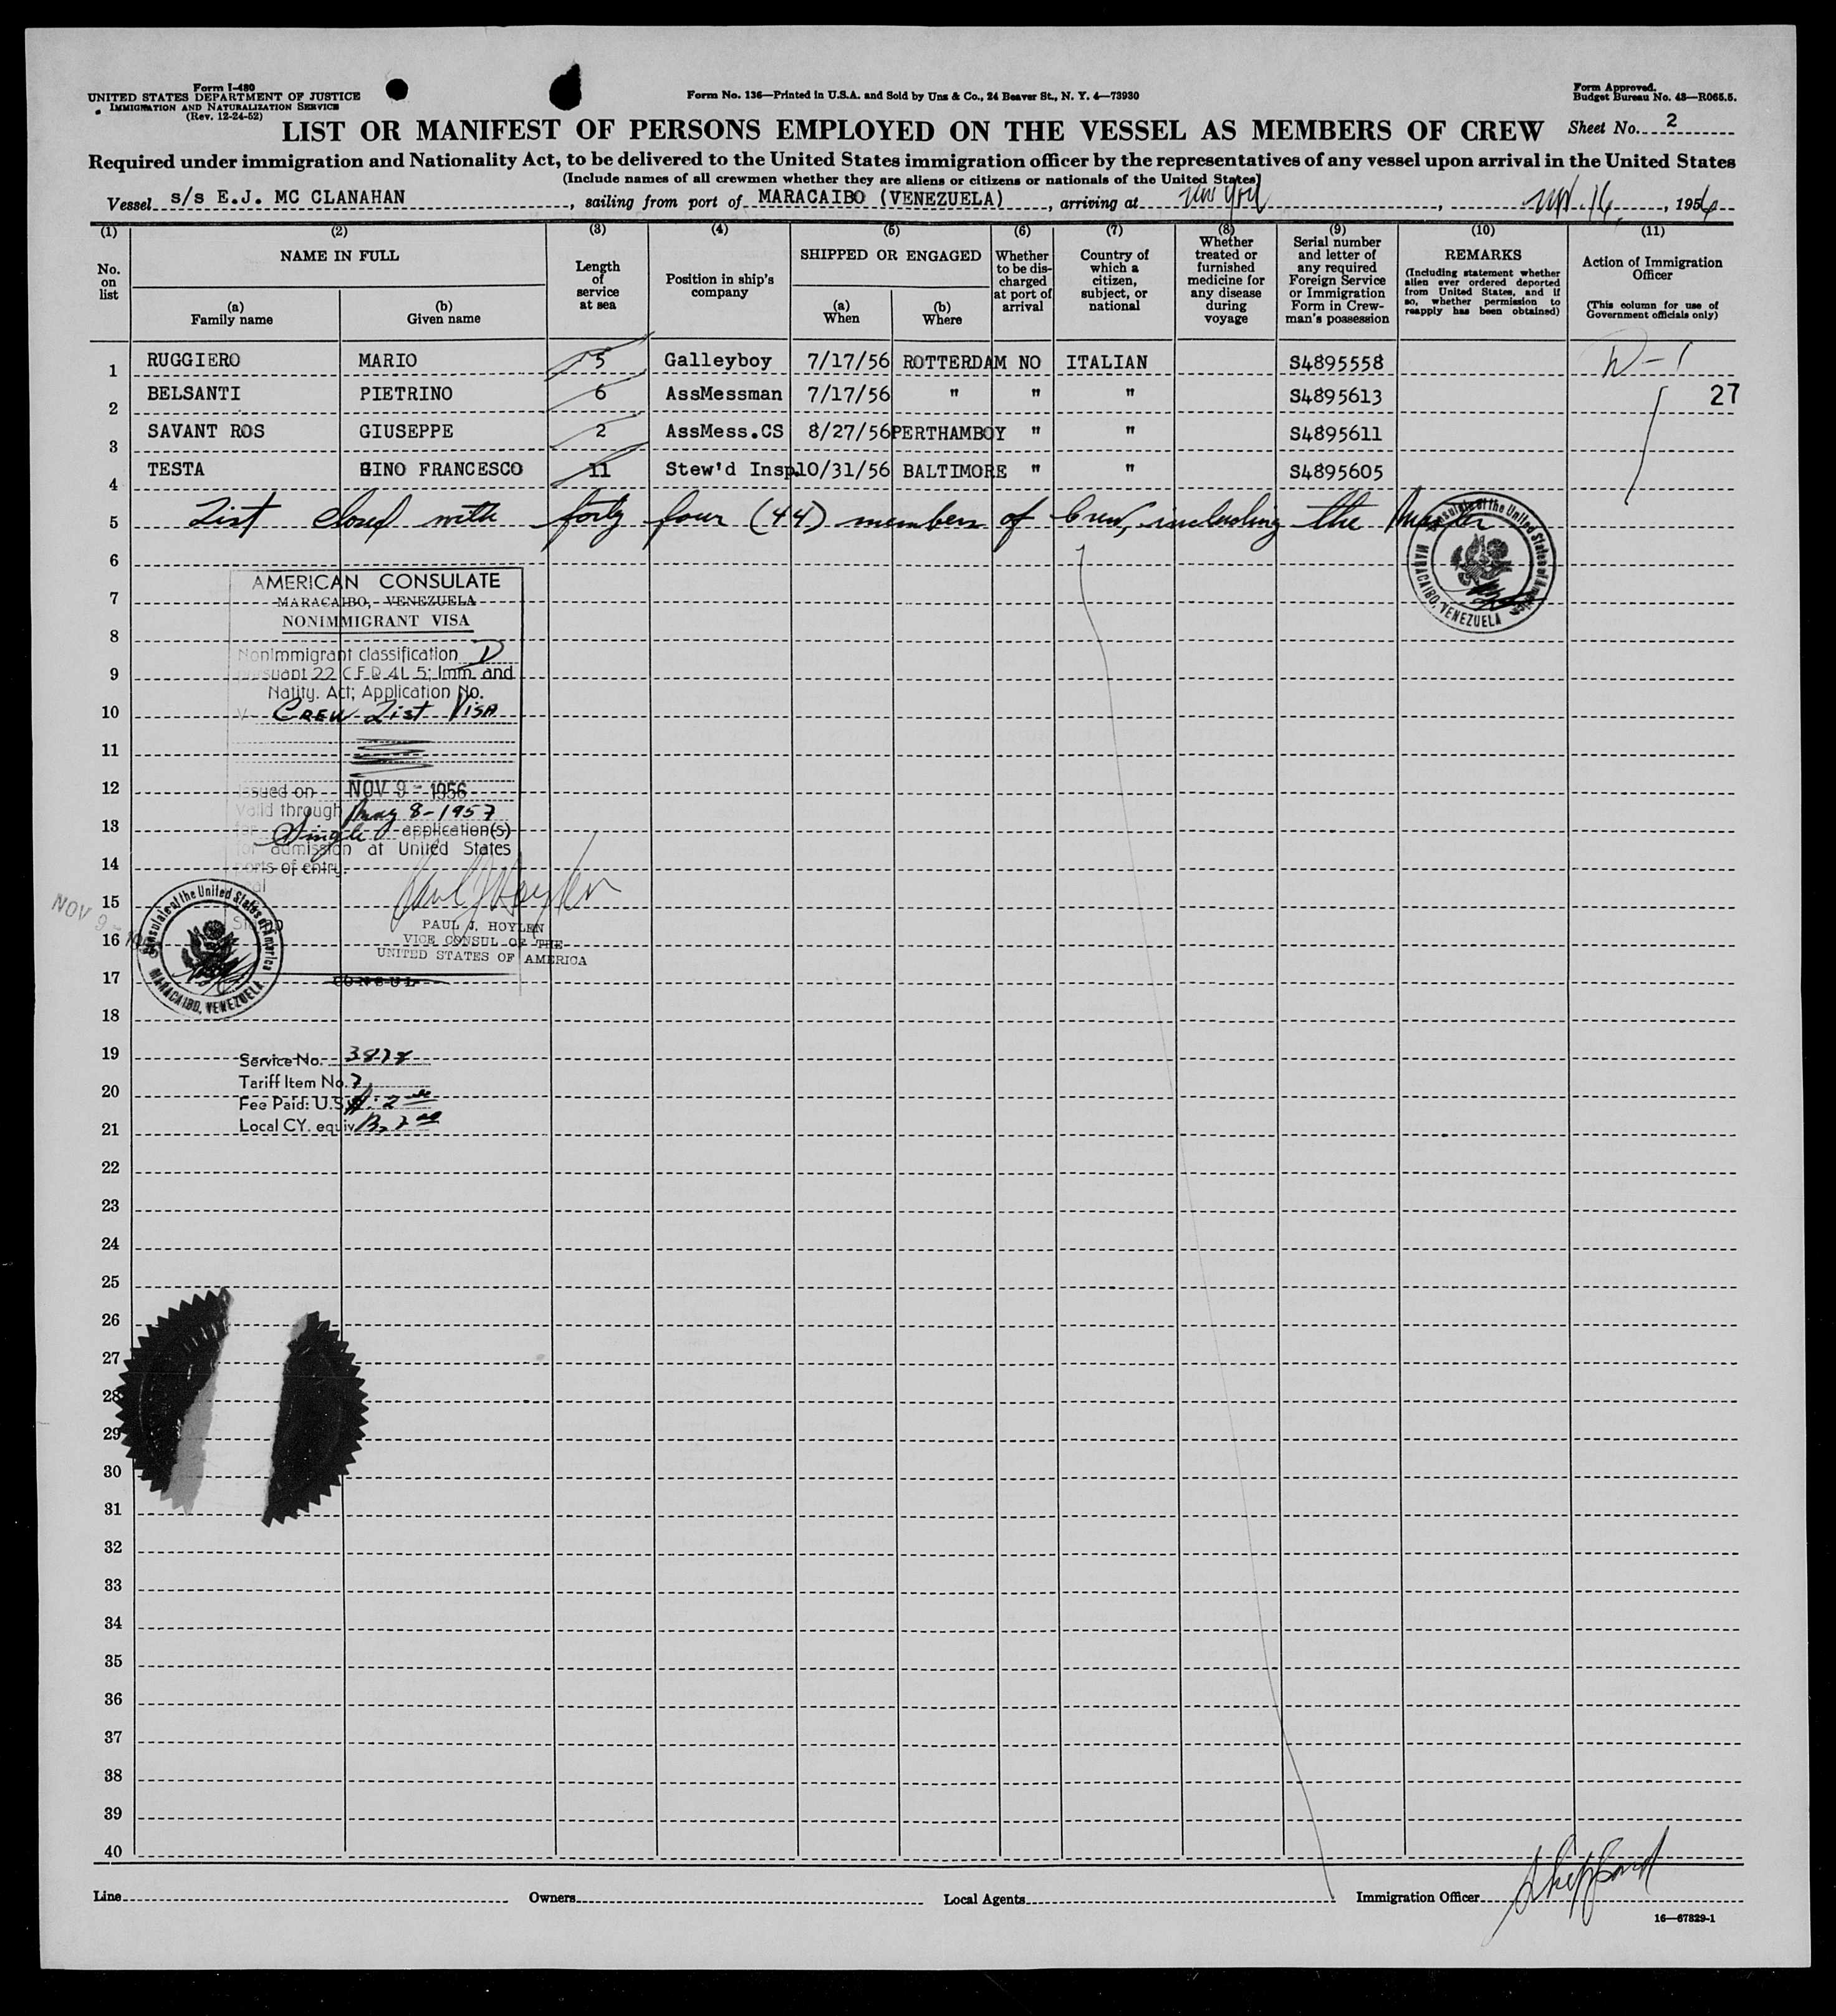 Form I-480
UNITED STATES DEPARTMENT OF JUSTICE
IMMIGRATION AND NATURALIZATION SERVICE
(Rev. 12-24-52)
Form No. 136—Printed in U.S.A. and Sold by Unz & Co., 24 Beaver St., N. Y. 4—73930
Form Approved.
Budget Bureau No. 43—R065.5.
LIST OR MANIFEST OF PERSONS EMPLOYED ON THE VESSEL AS MEMBERS OF CREW Sheet No. 2
Required under immigration and Nationality Act, to be delivered to the United States immigration officer by the representatives of any vessel upon arrival in the United States
(Include names of all crewmen whether they are aliens or citizens or nationals of the United States)
Vessel s/s E.J. MC CLANAHAN, sailing from port of MARACAIBO (VENEZUELA), arriving at New York, Nov. 16, 1956
(1) (2) (3) (4) (5) (6) (7) (8) (9) (10) (11)
No. on list
NAME IN FULL
(a) Family name
(b) Given name
Length of service at sea
Position in ship's company
SHIPPED OR ENGAGED
(a) When
(b) Where
Whether to be discharged at port of arrival
Country of which a citizen, subject, or national
Whether treated or furnished medicine for any disease during voyage
Serial number and letter of any required Foreign Service or Immigration Form in Crewman's possession
REMARKS
(Including statement whether alien ever ordered deported from United States, and if so, whether permission to reapply has been obtained)
Action of Immigration Officer
(This column for use of Government officials only)
1 RUGGIERO MARIO 5 Galleyboy 7/17/56 ROTTERDAM NO ITALIAN S4895558 D-1
2 BELSANTI PIETRINO 6 AssMessman 7/17/56 " " " S4895613 27
3 SAVANT ROS GIUSEPPE 2 AssMess.CS 8/27/56 PERTHAMBOY " " S4895611
4 TESTA GINO FRANCESCO 11 Stew'd Insp. 10/31/56 BALTIMORE " " S4895605
5 List closed with forty four (44) members of Crew, including the Master
6
7
8
9
10
11
12
13
14
15
16
17
18
19
20
21
22
23
24
25
26
27
28
29
30
31
32
33
34
35
36
37
38
39
40
AMERICAN CONSULATE
MARACAIBO, VENEZUELA
NONIMMIGRANT VISA
Nonimmigrant classification D
pursuant 22 C F R 41.5; Imm. and
Natlty. Act; Application No.
V CREW List VISA
Issued on NOV 9 - 1956
Valid through May 8-1957
for Single application(s)
for admission at United States
ports of entry.
Paul J Hoylen
PAUL J. HOYLEN
VICE CONSUL OF THE
UNITED STATES OF AMERICA
CONSUL
NOV 9 -
Consulate of the United States of America
MARACAIBO, VENEZUELA
Consulate of the United States of America
MARACAIBO, VENEZUELA
Service No. 3878
Tariff Item No. 7
Fee Paid: U.S. $: 2
Local CY. equiv.
Line
Owners
Local Agents
Immigration Officer Sheppard
16—67829-1